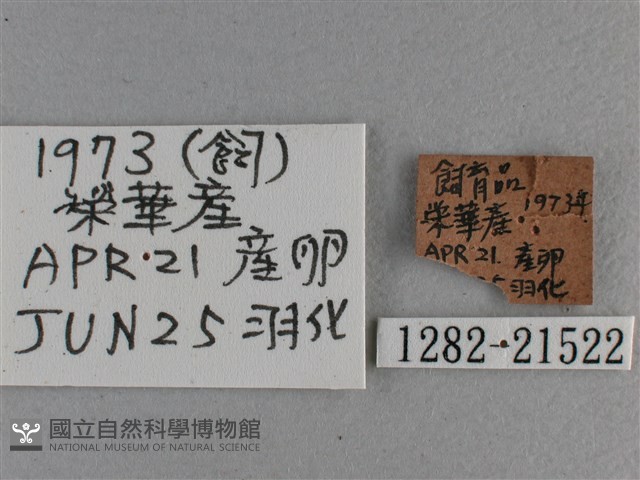 1973 (飼)
榮華産
APR·21 産卵
JUN 25 羽化
飼育品
榮華産· 1973年
APR 21. 産卵
25 羽化
1282-21522
國立自然科學博物館
NATIONAL MUSEUM OF NATURAL SCIENCE